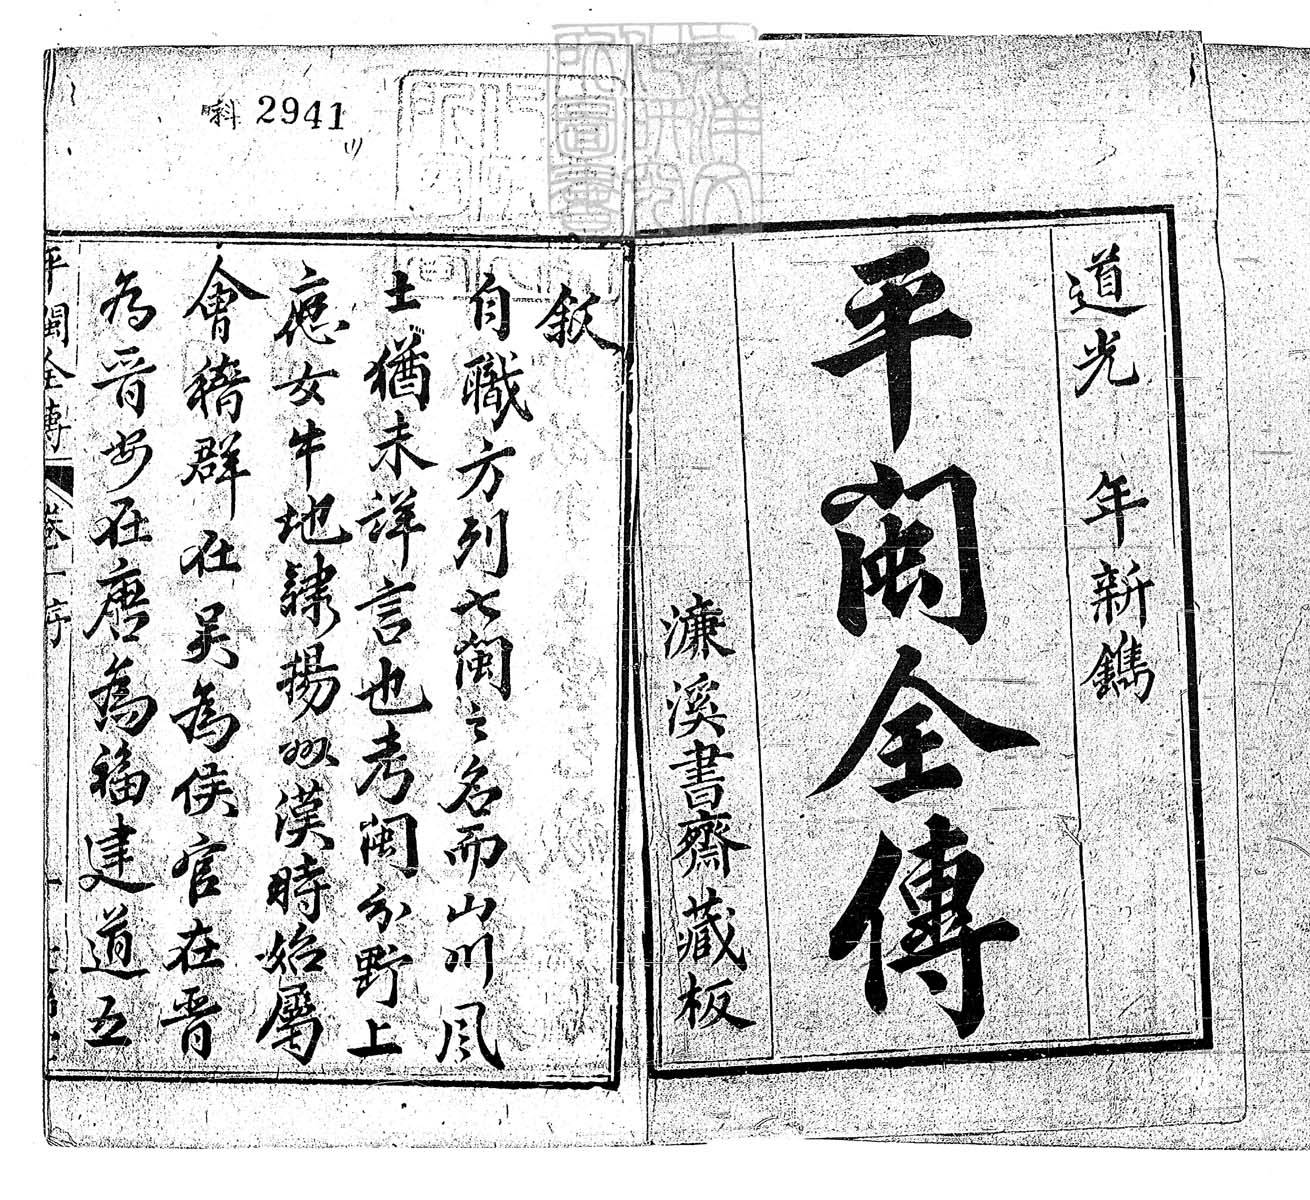 道光 年新鐫
平閩全傳
濂溪書齋藏板
叙
自職方列七閩之名而山川风
士猶未詳言也考閩分野上
應女牛地隷揚州漢時始屬
會稽群在吴為侯官在晋
為晋安在唐為福建道五
平閩全傳 卷一序
2941
東洋文化研究所圖書